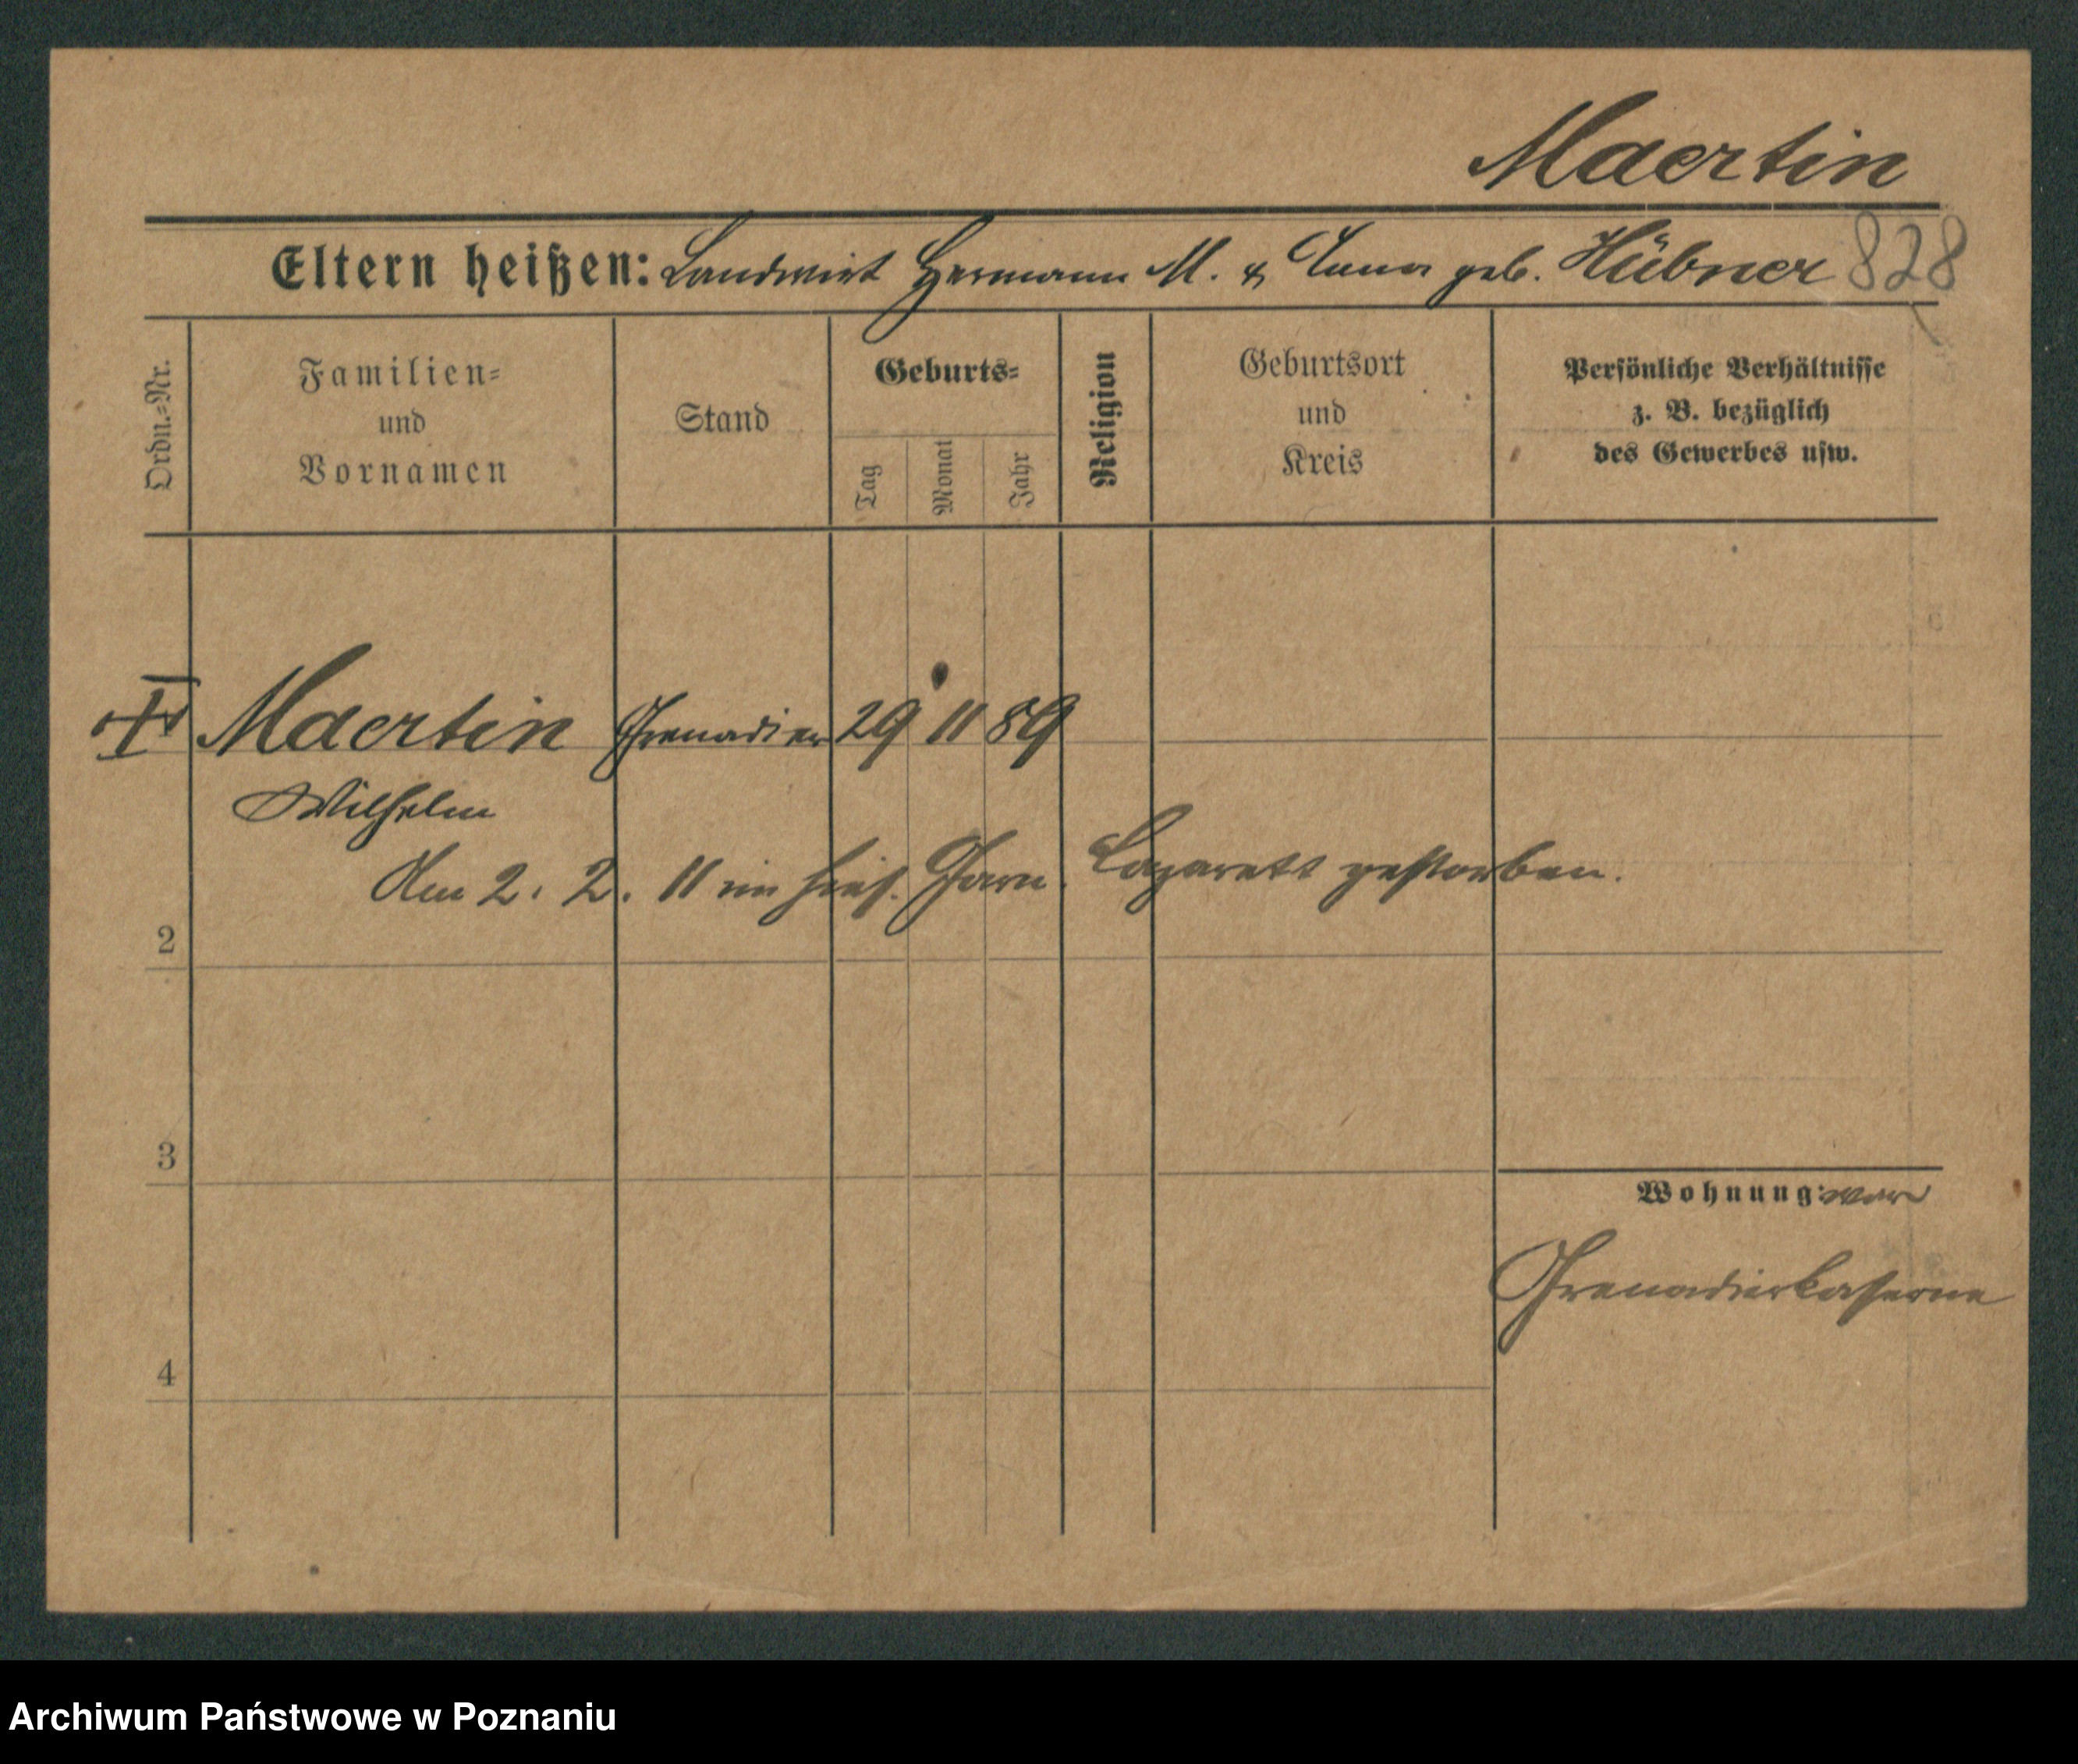 Maertin
Eltern heißen: Landwirt Hermann M. & Anna geb. Hübner 828
Ordn.=Nr.
Familien=
und
Vornamen
Stand
Geburts=
Tag
Monat
Jahr
Religion
Geburtsort
und
Kreis
Persönliche Verhältnisse
z. B. bezüglich
des Gewerbes usw.
Maertin Grenadier 29 11 89
Wilhelm
Am 2. 2. 11 im hies. Garn. Lazarett gestorben.
2
3
Wohnung: war
Grenadierkaserne
4
Archiwum Państwowe w Poznaniu